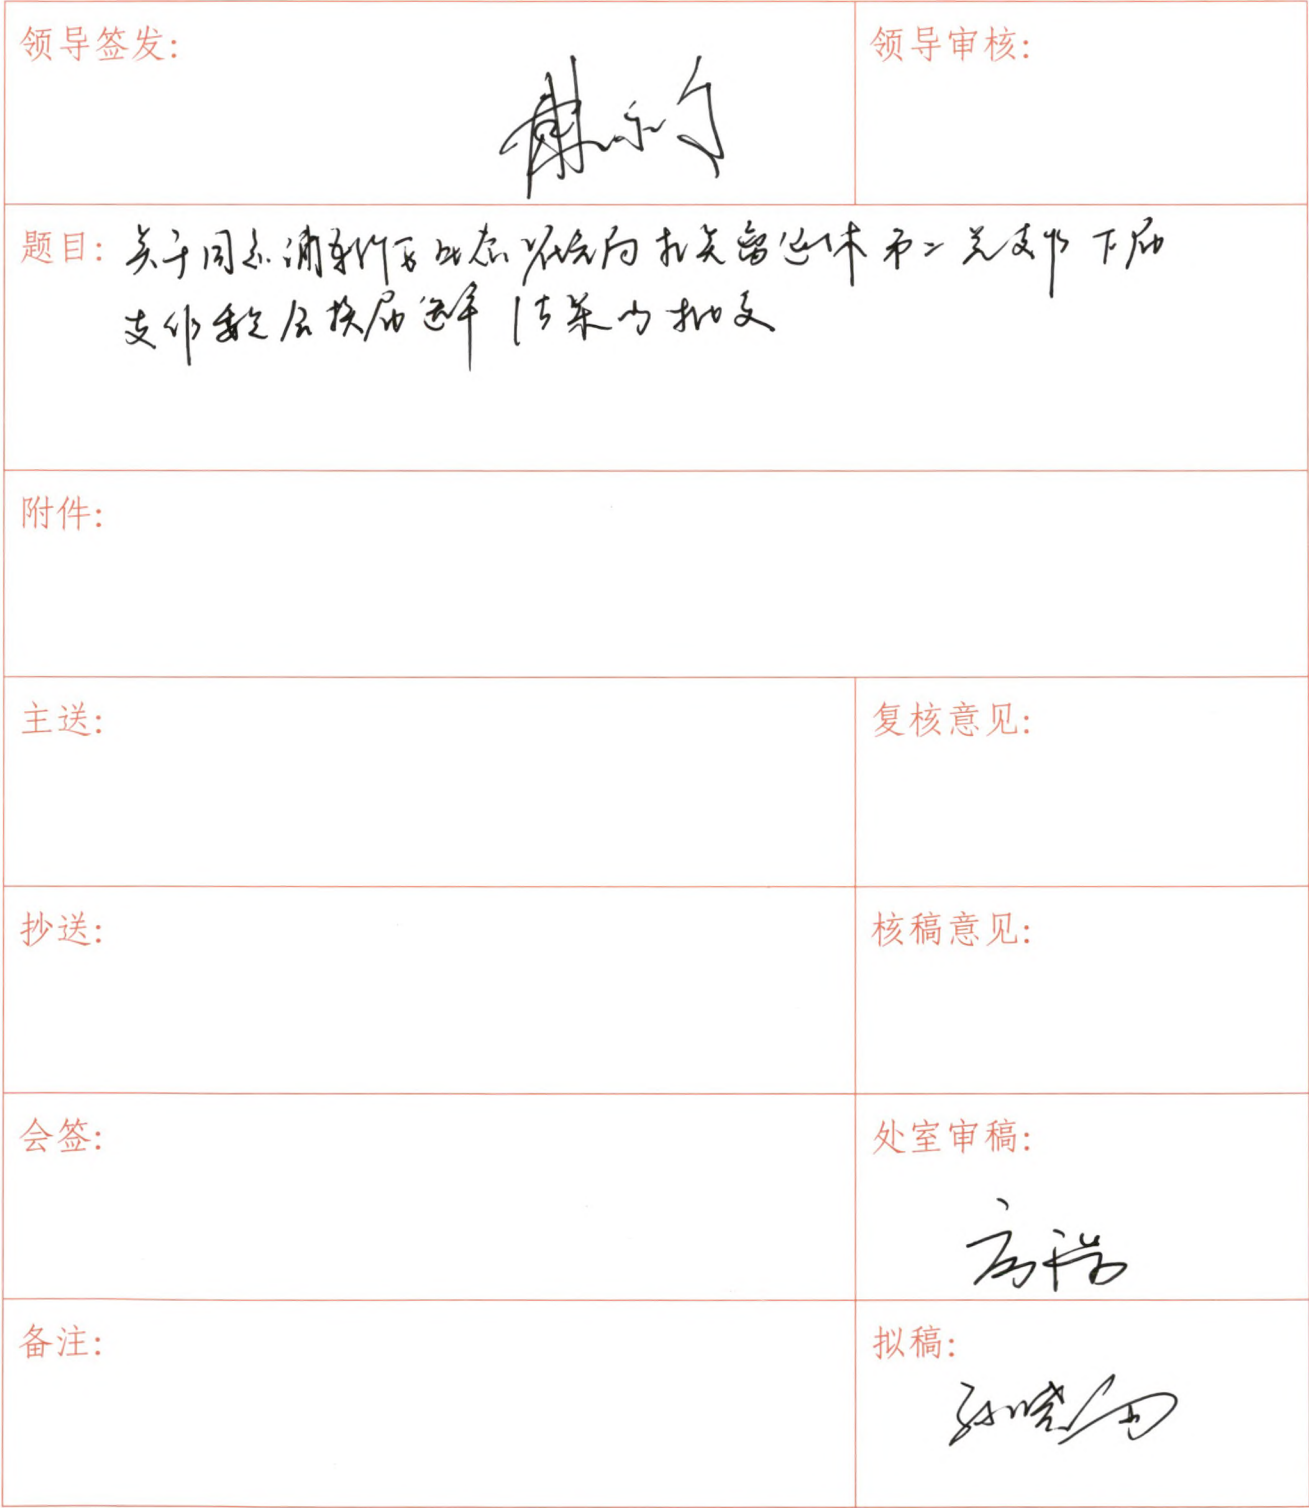 领导签发:
领导审核:
题目: 关于同意浦东新区生态环境局机关离退休第二党支部下届
支部委员会换届选举结果的批复
附件:
主送:
复核意见:
抄送:
核稿意见:
会签:
处室审稿:
备注:
拟稿: